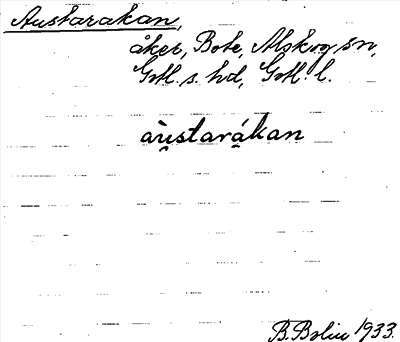 Austarakan,
åker, Bote, Alskog sn,
Gotl. s. hd, Gotl. l.
au̯starákan
B. Bolin 1933.